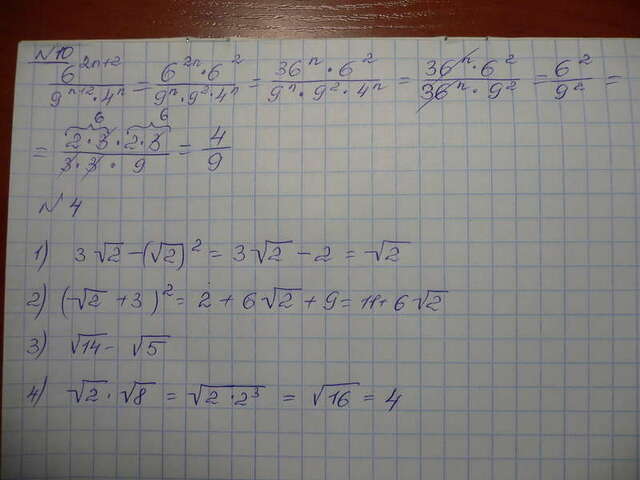 N10
6^(2n+2) / (9^(n+2)·4^n) = 6^(2n)·6^2 / (9^n·9^2·4^n) = 36^n·6^2 / (9^n·9^2·4^n) = 36^n·6^2 / (36^n·9^2) = 6^2 / 9^2 =
6 6
= 2·3·2·3 / (3·3·9) = 4/9
N4
1) 3√2 - (√2)^2 = 3√2 - 2 = √2
2) (√2 + 3)^2 = 2 + 6√2 + 9 = 11 + 6√2
3) √14 - √5
4) √2 · √8 = √(2·2^3) = √16 = 4